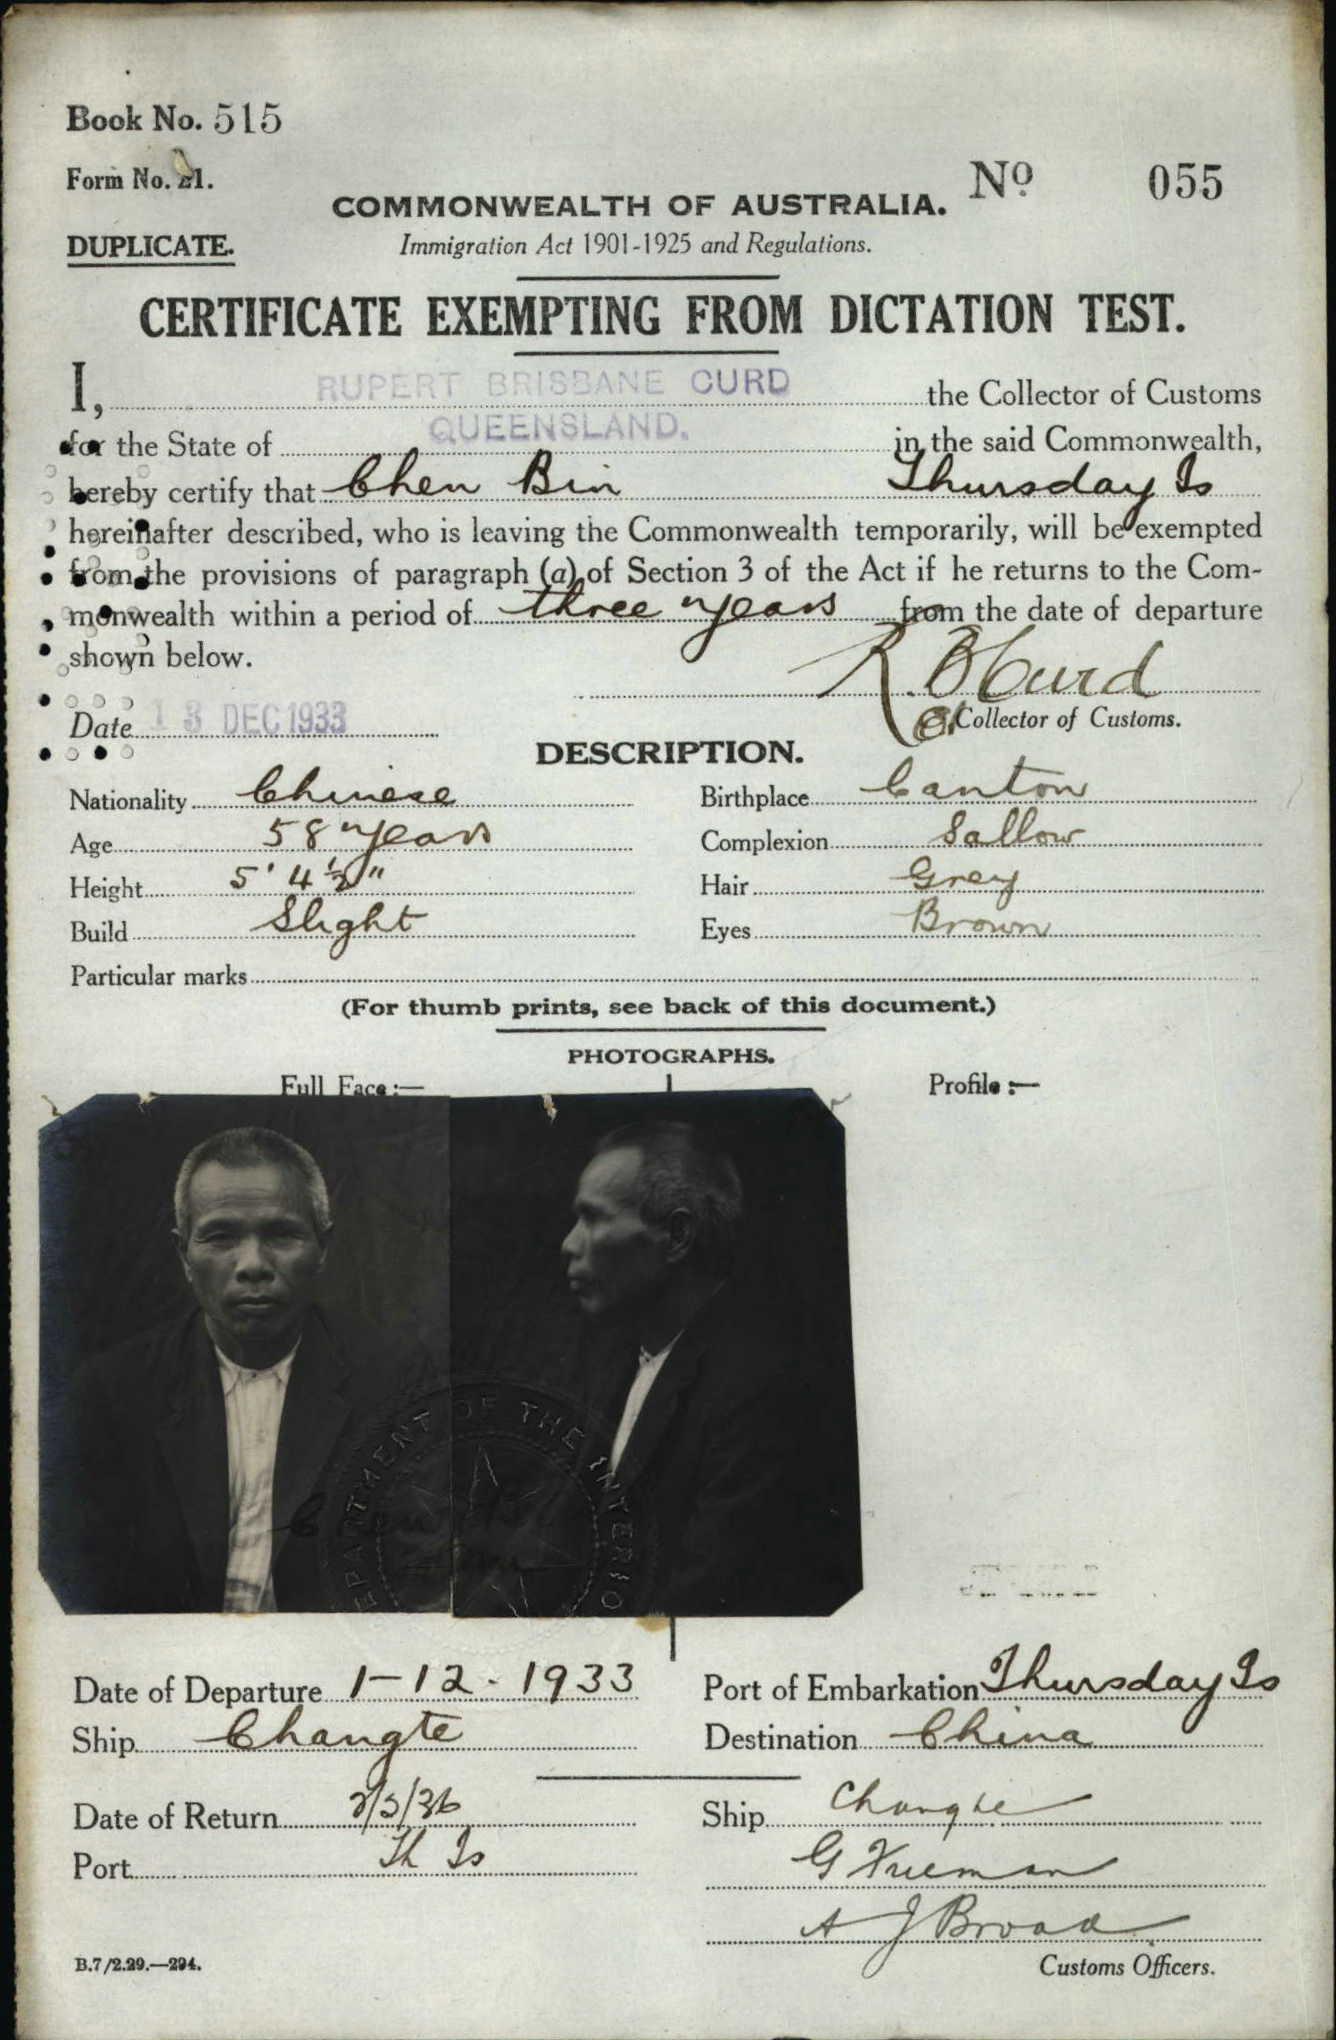 Book No. 515
Form No. 21.
COMMONWEALTH OF AUSTRALIA.
No 055
DUPLICATE.
Immigration Act 1901-1925 and Regulations.
CERTIFICATE EXEMPTING FROM DICTATION TEST.
I, RUPERT BRISBANE CURD the Collector of Customs
for the State of QUEENSLAND. in the said Commonwealth,
hereby certify that Chen Bin Thursday Is
hereinafter described, who is leaving the Commonwealth temporarily, will be exempted
from the provisions of paragraph (a) of Section 3 of the Act if he returns to the Com-
monwealth within a period of three years from the date of departure
shown below.
R. B Curd
Collector of Customs.
Date 13 DEC 1933
DESCRIPTION.
Nationality Chinese Birthplace Canton
Age 58 years Complexion Sallow
Height 5' 4½" Hair Grey
Build Slight Eyes Brown
Particular marks
(For thumb prints, see back of this document.)
PHOTOGRAPHS.
Full Face:— Profile:—
DEPARTMENT OF THE INTERIO
Date of Departure 1-12-1933 Port of Embarkation Thursday Is
Ship Changte Destination China
Date of Return 2/3/36 Ship Changte
Port Th Is G Freeman
A J Broad
B.7/2.29.—294. Customs Officers.